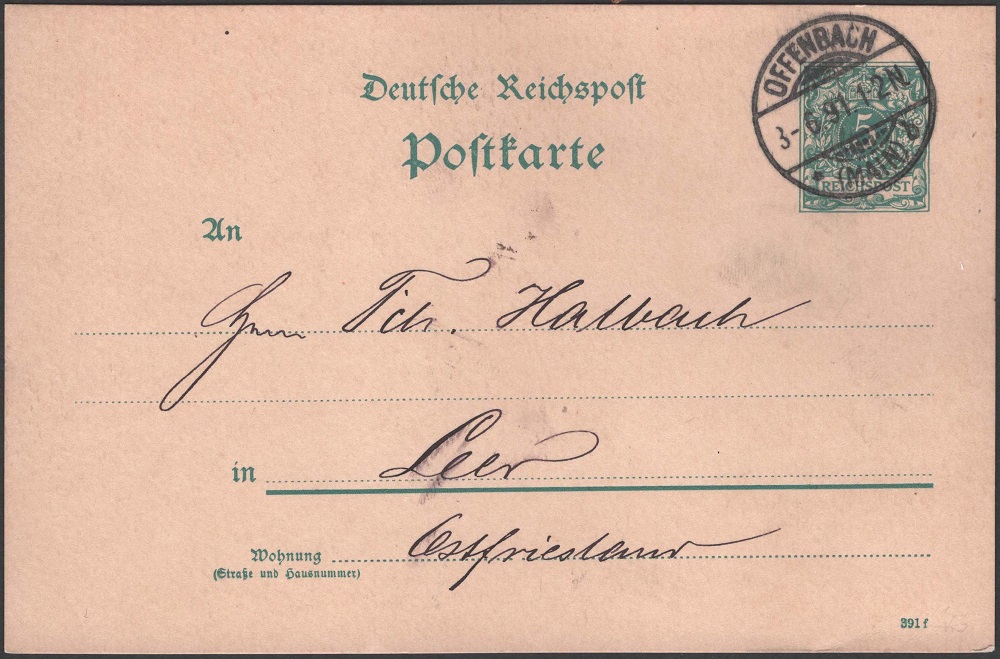 Deutsche Reichspost
Postkarte
OFFENBACH
3-6.91.1-2N.
* (MAIN) b
5
REICHSPOST
An
Herrn Fch. Halbach
in Leer
Wohnung Ostfriesland
(Straße und Hausnummer)
391 f